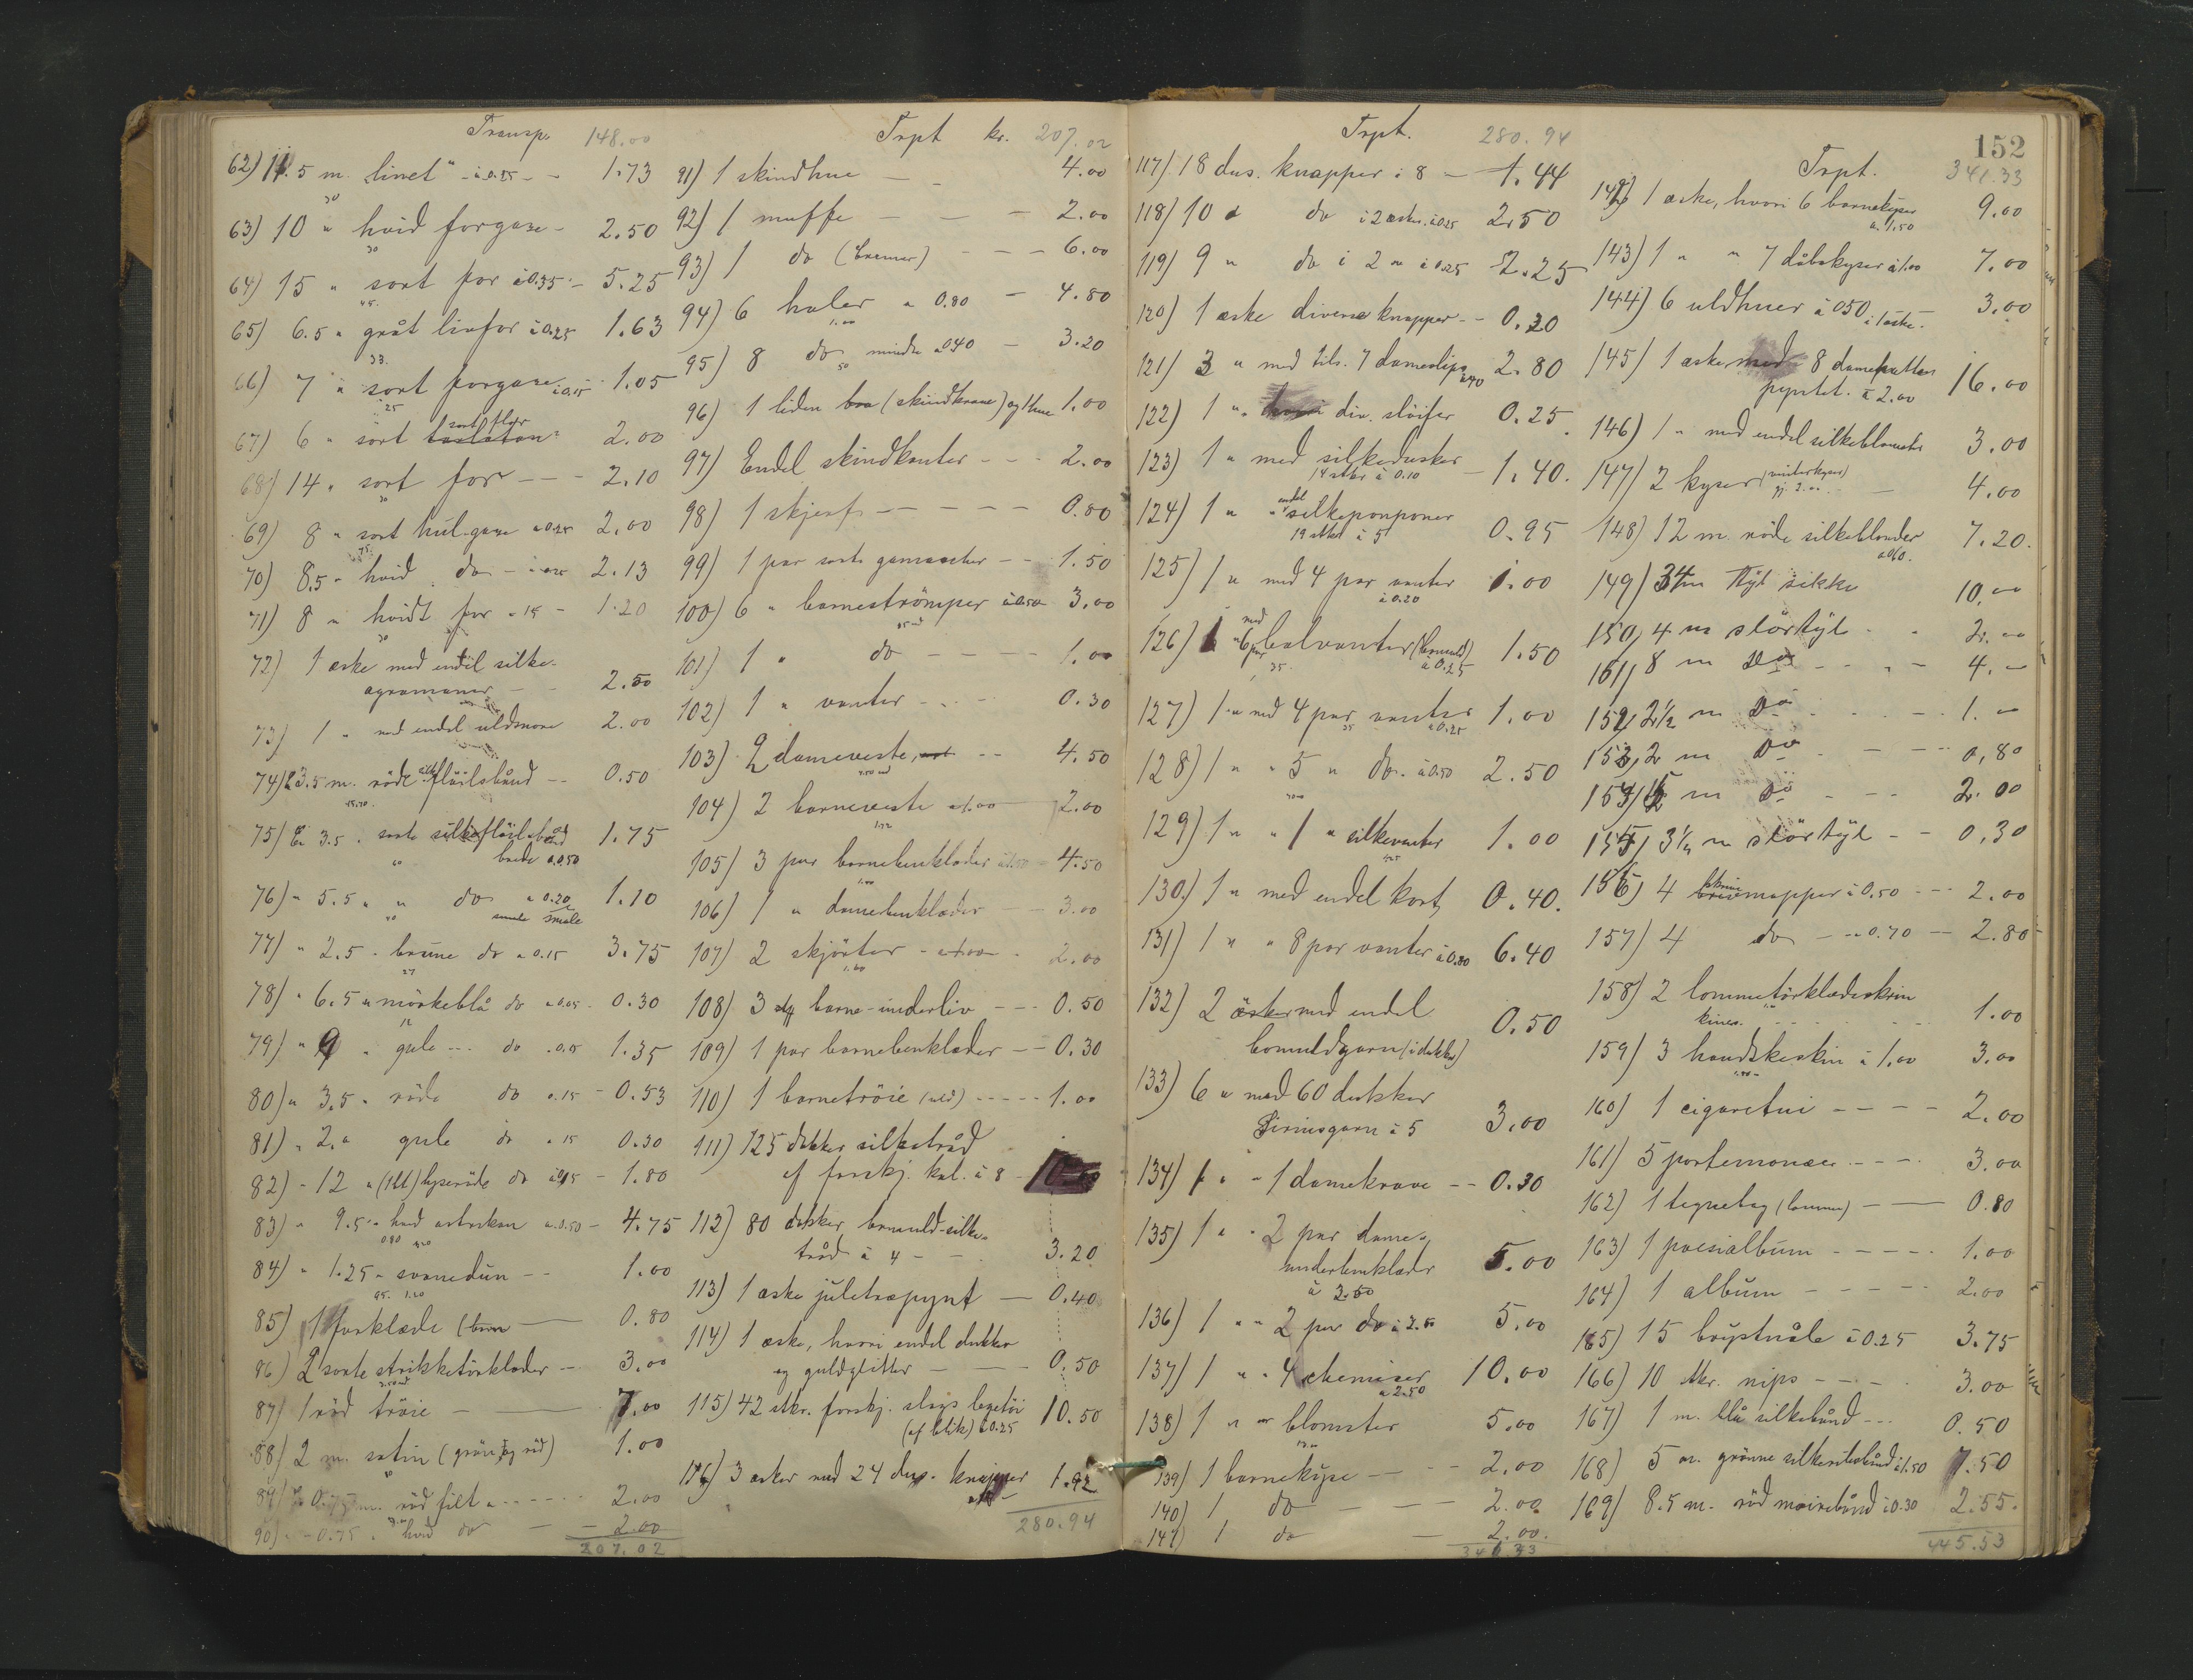 Transp. 148.00
62) 11.5 m. linet" - à 0.15 - - 1.73
30
63) 10 " hvid forgaze - 2.50
30
64) 15 " sort for à 0.35 - 5.25
45.
65) 6.5 " gråt livfor à 0.25 1.63
33.
66) 7 " sort forgaze à 0.15 1.05
25
67) 6 " sort sort flor 2.00
68) 14 " sort for - - - 2.10
30
69) 8 " sort hul-gaze à 0.25 2.00
70) 8.5 " hvid do - à 0.25 2.13
71) 8 " hvidt for à 15 - 1.20
30
72) 1 æske med endel silke-
agramaner - - 2.50
73) 1 " med endel uldsnore 2.00
74) 3.5 m. röde silkeflöilsbånd - - 0.50
75) 3.5 " sorte silkeflöilsbånd 1.75
brede à 0.50
76) " 5.5 " " do à 0.20 1.10
smale
77) " 2.5 " brune do à 0.15 3.75
27
78) " 6.5 " mörkeblå do à 0.05 - 0.30
12
79) " 9 " gule - - - do à 0.15 1.35
80) " 3.5 " röde do à 15 - 0.53
81) " 2 " gule do à 15 0.30
82) - 12 " lyseröde do à 0.15 - 1.80
83) " 9.5 " hvid astrakan à 0.50 - 4.75
84) " 1.25 " svanedun - - 1.00
85) 1 forklæde (barn 0.80
86) 2 sorte strikketörklæder - 3.00
87) 1 röd tröie - 7.00
88) 2 m. satin (grön og röd) 1.00
89) 0.75 m. röd filt " - - - - 2.00
90) " - 0.75 " hvid do - - 2.00
207.02
Trpt kr. 207.02
91) 1 skindhue - - 4.00
92) 1 muffe - - - 2.00
93) 1 do (bræmer) - - - 6.00
94) 6 haler à 0.80 - 4.80
1.00
95) 8 do mindre à 0.40 - 3.20
50
96) 1 liden boa (skindkrave) og 1 hue 1.00
97) Endel skindkanter - - - 2.00
98) 1 skjærf - - - - - 0.80
99) 1 par sorte gamascher - - 1.50
100) 6 " barneströmper à 0.50 3.00
101) 1 " do - - - - 1.00
102) 1 " vanter - - - 0.30
103) 2 dameveste, - - 4.50
104) 2 barneveste à 1.00 2.00
105) 3 par barnebenklæder à 1.50 - 4.50
106) 1 " damebenklæder - - 3.00
107) 2 skjörter - à 1.00 - 2.00
108) 3 barne-underliv - - - 0.50
109) 1 par barnebenklæder - - 0.30
110) 1 barnetröie (uld) - - - - - 1.00
111) 125 dukker silketråd
af forskj. kul. à 8 - 10.00
112) 80 dukker bomuld-silke-
tråd à 4 - - 3.20
113) 1 æske juletræpynt - 0.40
114) 1 æske, hvori endel dukker
og guldglitter - - - 0.50
115) 42 stkr. forskj. slags legetöi
(af blik) à 0.25 10.50
116) 3 æsker med 24 dus. knapper 1.92
280.94
Trpt. 280.94
117) 18 dus. knapper à 8 - 1.44
118) 10 " do i 2 æsker à 0.25 2.50
119) 9 " do i 2 " à 0.25 2.25
120) 1 æske diverse knapper - - 0.20
121) 3 " med tils. 7 dameslips 2.80
à 40
122) 1 " div. slöifer 0.25
123) 1 " med silkedusker
14 stkr à 0.10 - 1.40.
124) 1 " endel silkeponponer
19 stkr à 5 0.95
125) 1 " med 4 par vanter 1.00
à 0.20
126) 1 " med 6 par balvanter (bomuld) 1.50
35. à 0.25
127) 1 " med 4 par vanter 1.00
35 à 0.25
128) 1 " " 5 " do. à 0.50 2.50
129) 1 " " 1 " silkevanter 1.00
130) 1 " med endel kort 0.40.
131) 1 " " 8 par vanter à 0.80 6.40
132) 2 æsker med endel
bomuldgarn (i dukker) 0.50
133) 6 " med 60 dukker
Firnisgarn à 5 3.00
134) 1 " " 1 damekrave - - 0.30
135) 1 " " 2 par dame-
underbenklæder 5.00
à 2.50
136) 1 " " 2 par do à 2.50 5.00
137) 1 " " 4 chemiser 10.00
à 2.50
138) 1 " " blomster 5.00
139) 1 barnekyse - - - 2.00
140) 1 do - - - 2.00
141) 1 do - 2.00.
341.33
152
Trpt. 341.33
142) 1 æske, hvori 6 barnekyser 9.00
à 1.50
143) 1 " " 7 dåbskyser à 1.00 7.00
144) 6 uldhuer à 0.50 i 1 æske. 3.00
145) 1 æske med 8 damehatter
pyntet. à 2.00 16.00
146) 1 " med endel silkeblomster 3.00
147) 2 kyser (vinterkyser) - 4.00
148) 12 m. röde silkeblonder 7.20.
à 0.60.
149) 34 m tyl silke 10.00
150) 4 m slörtyl - - 2.00
151) 8 m do - - - - 4.-
152) 2½ m do - - - - 1.-
153) 2 m do - - - - 0,80
154) 5 m do - - - 2.00
155) 3¼ m slörtyl - - 0,30
156) 4 skrivemapper à 0.50 - - - 2.00
157) 4 do - - à 0.70 - 2.80
158) 2 lommetörklædeskrin
kines. - - - - - 1.00
159) 3 handskeskrin à 1.00 3.00
160) 1 cigaretui - - - - 2.00
161) 5 portemonæer - - - - 3.00
162) 1 tegnetøy (lomme) - - 0.80
163) 1 poesialbum - - - - - 1.00
164) 1 album - - - - - 2.00
165) 15 brystnåle à 0.25 3.75
166) 10 stkr. nips - - - - 3.00
167) 1 m. blå silkebånd - - - 0.50
168) 5 m. grönne silkeribsbånd à 1.50 7.50
169) 8.5 m. röd moirébånd à 0.30 2.55.
445.53